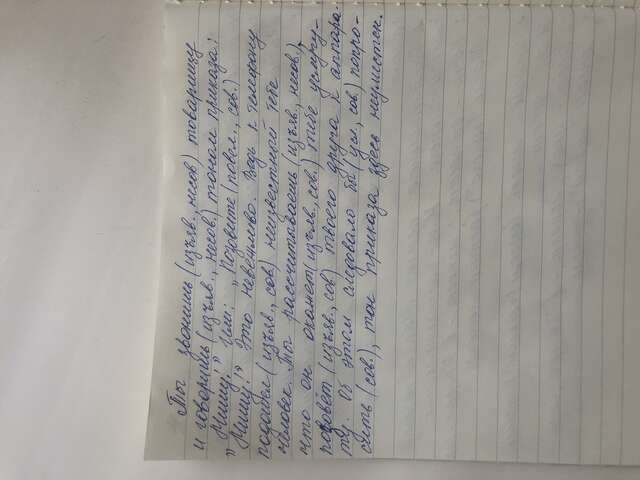 Ты звонишь (изъяв. несов) товарищу
и говоришь (изъяв., несов) тоном приказа:
„Мишу!" Или: „Позовите (повел., сов.)
„Мишу!" Это невежливо. Ведь к телефону
подошел (изъяв., сов) неизвестный тебе
человек. Ты рассчитываешь (изъяв., несов),
что он окажет (изъяв., сов.) тебе услугу-
позовёт (изъяв., сов) твоего друга к аппара-
ту. Об этом следовало бы (усл., сов) попро-
сить (сов.), тон приказа здесь неуместен.